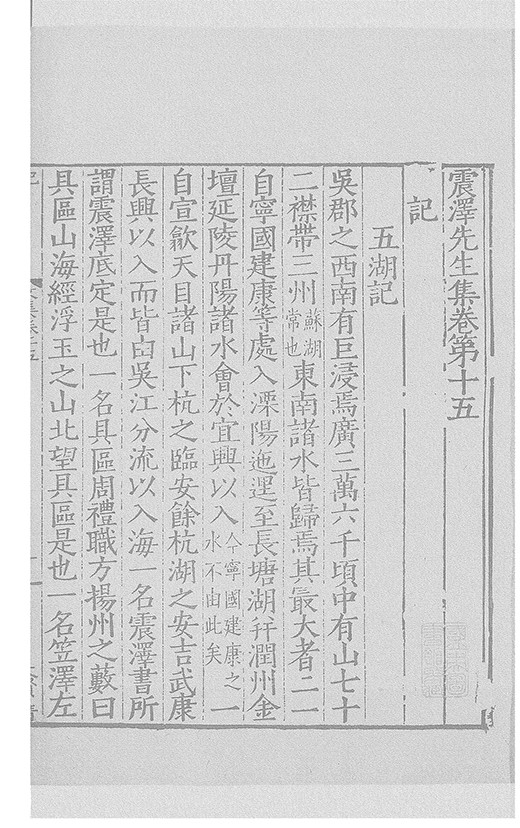 震澤先生集卷第十五
記
五湖記
吳郡之西南有巨浸焉廣三萬六千頃中有山七十
二襟帶三州蘇湖常也東南諸水皆歸焉其最大者二一
自寧國建康等處入溧陽迤邐至長塘湖幷潤州金
壇延陵丹陽諸水會於宜興以入今寧國建康之水不由此矣一
自宣歙天目諸山下杭之臨安餘杭湖之安吉武康
長興以入而皆由吳江分流以入海一名震澤書所
謂震澤底定是也一名具區周禮職方揚州之藪曰
具區山海經浮玉之山北望具區是也一名笠澤左